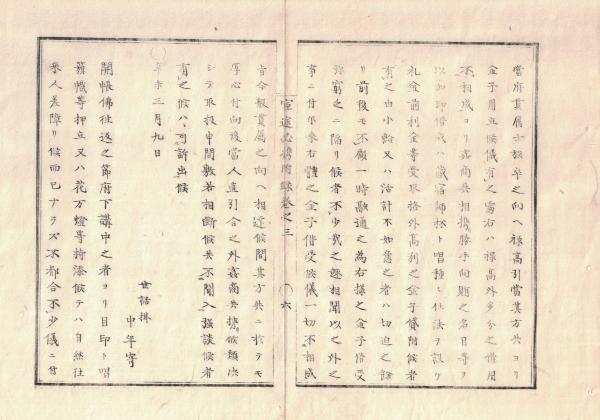 當府貫属士族卒之向ヘ禄高引當其方共ヨリ
金子用立候儀有之處右ハ禄高外多分之借用
不相成ヨリ商共相携勝手向賄之名目等ヲ
以加印借或ハ蔵宿師杯ト唱種々仕法ヲ設ケ
礼金前利金等受取格外高利之金子貸附候者
有之由小給又ハ活計不如意之者ハ切迫之餘
リ前後モ不顧一時融通之為右様之金子借受
弥窮之ニ陥リ候者不少哉之趣相聞以之外之
事ニ付尓来右體之金子借受候儀一切不相成
官途必携附録巻之三
〇六
旨今般貫属之向ヘ相達候間其方共ニ於テモ
厚心付向後當人直引合之外商共携候類決
シテ取扱申間敷若相断候共不聞入強談候者
有之候ハヽ可訴出候
辛未三月九日
世話掛
中年寄
開帳佛往返之節府下講中之者ヨリ目印ト唱
籏幟等押立又ハ花万燈等持添候テハ自然往
来人差障リ候而已ナラズ不都合不少儀ニ付